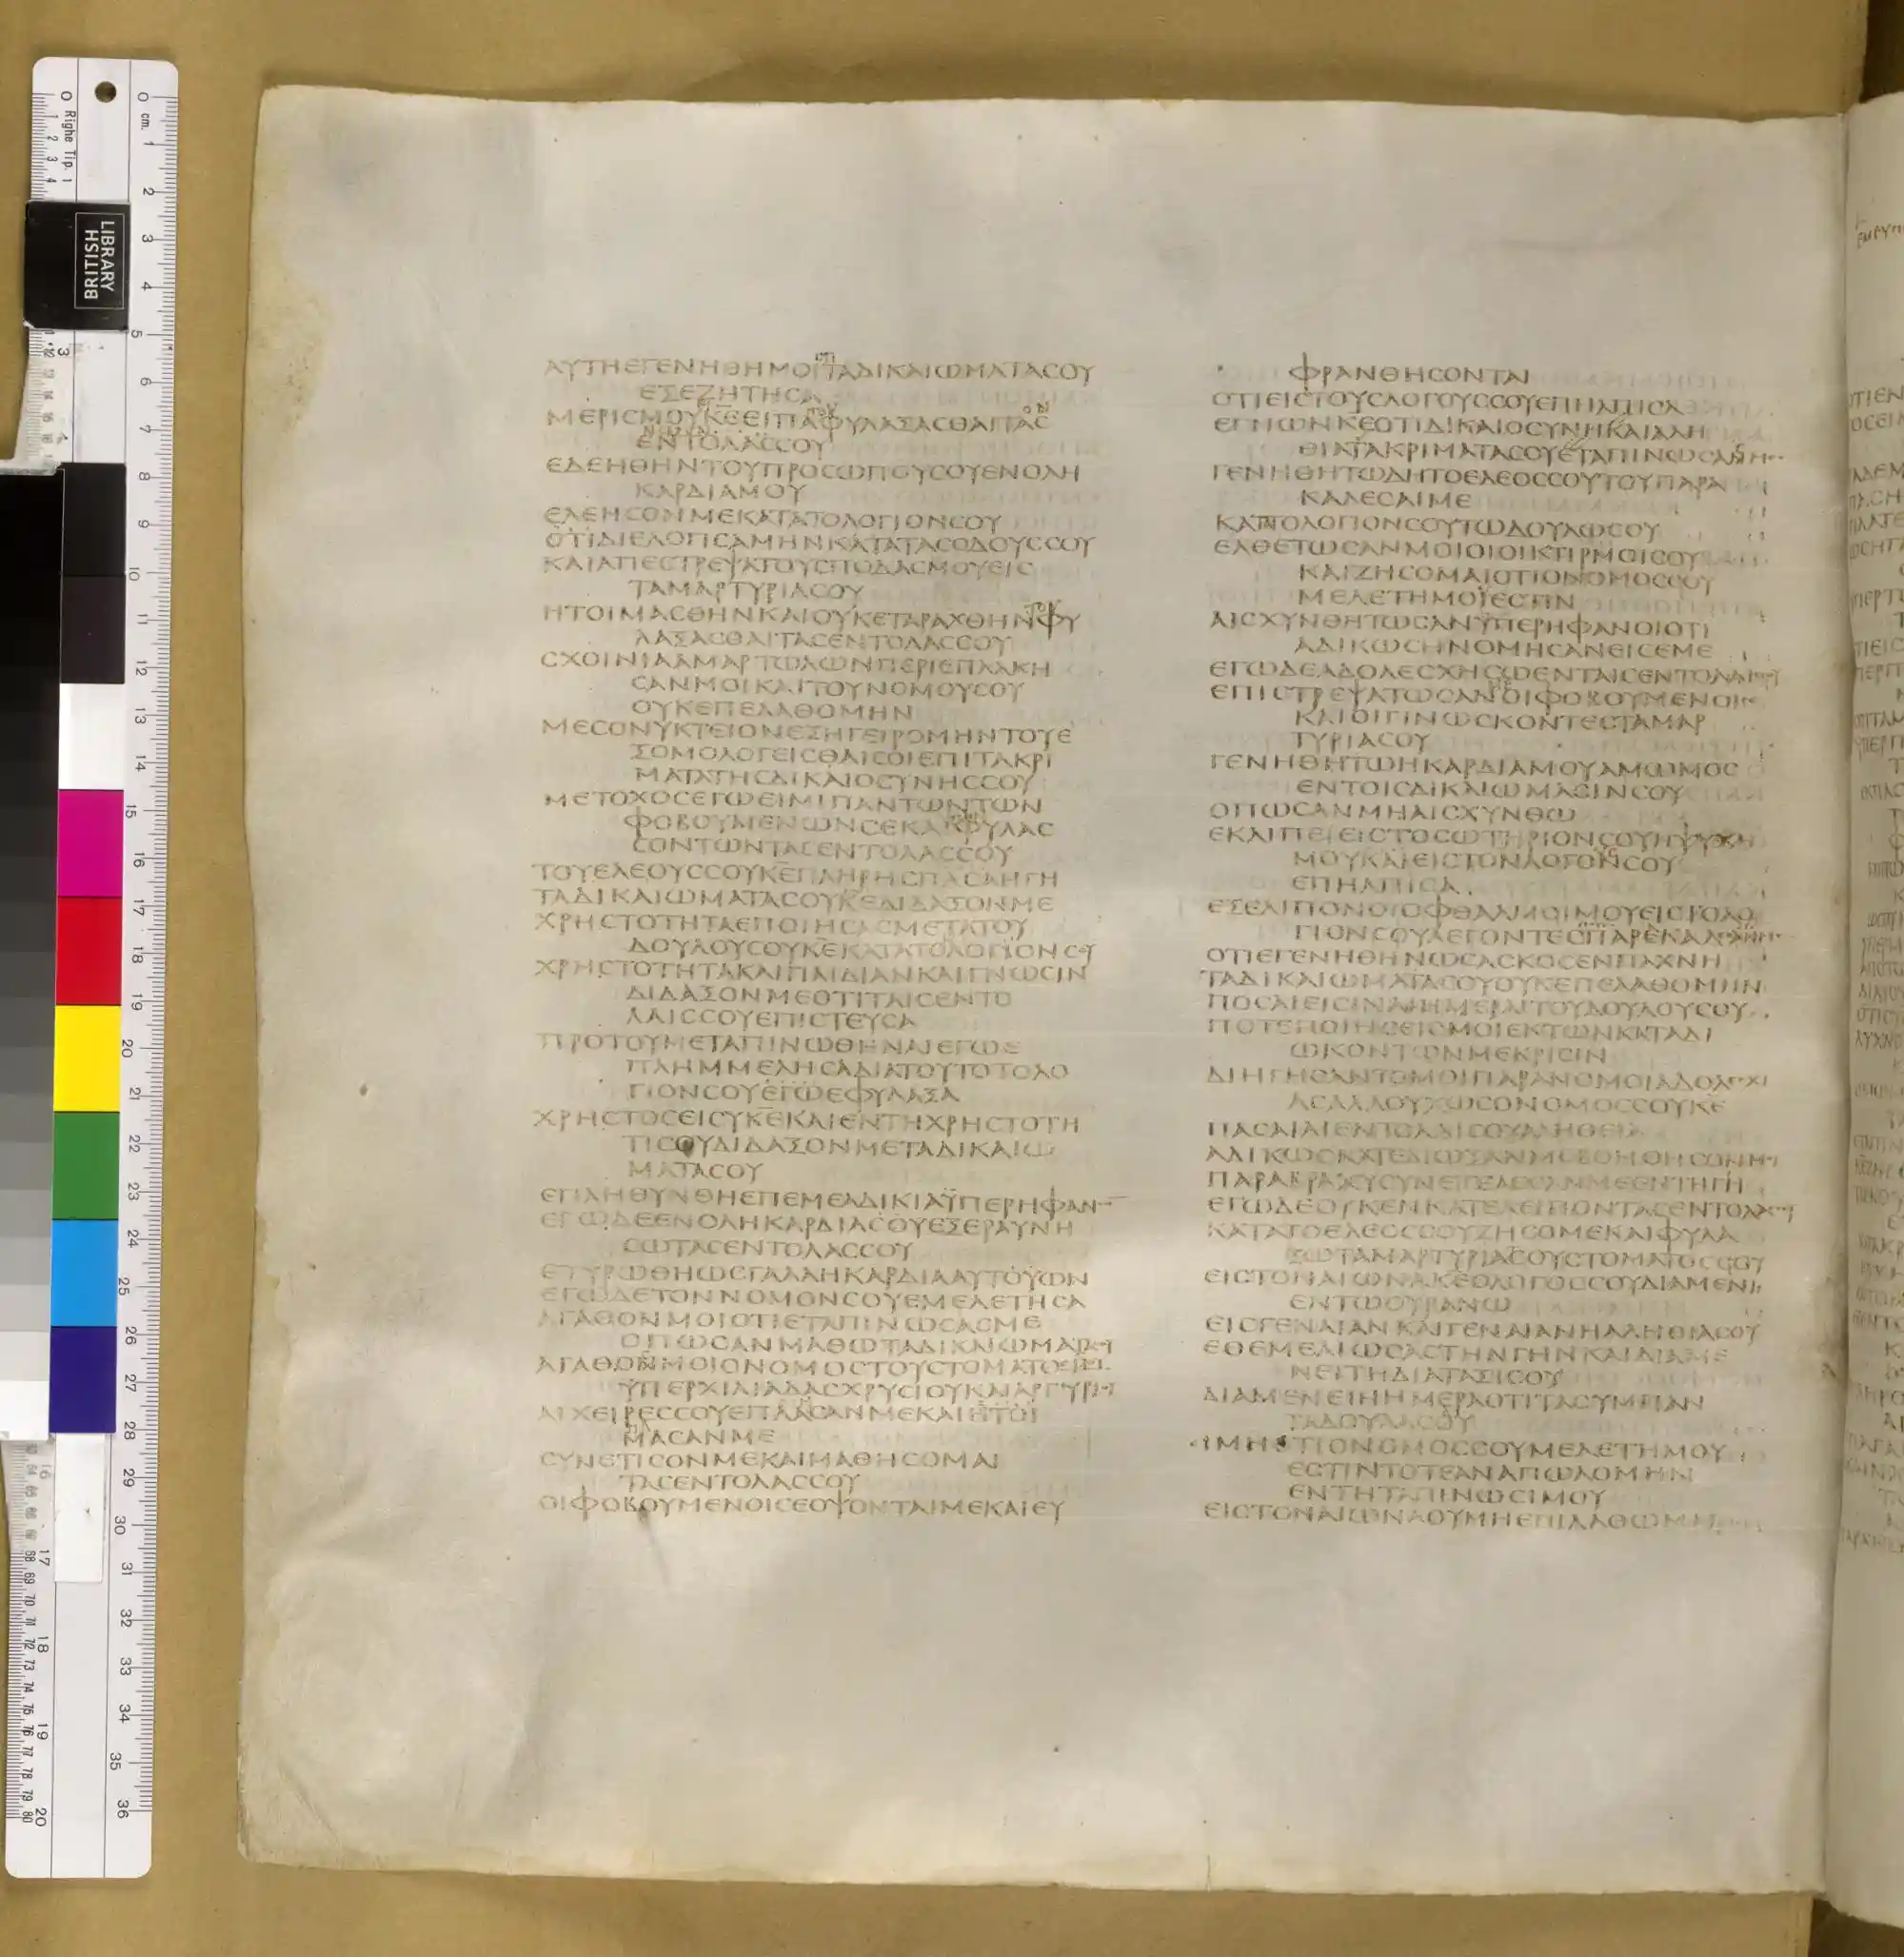 ΑΥΤΗΕΓΕΝΗΘΗΜΟΙΤΑΔΙΚΑΙΩΜΑΤΑCΟΥ
ΕΞΕΖΗΤΗCΑ
ΜΕΡΙCΜΟΥΚΕΕΙΠΑΦΥΛΑΞΑCΘΑΙΤΑC
ΕΝΤΟΛΑCCΟΥ
ΕΔΕΗΘΗΝΤΟΥΠΡΟCΩΠΟΥCΟΥΕΝΟΛΗ
ΚΑΡΔΙΑΜΟΥ
ΕΛΕΗCΟΝΜΕΚΑΤΑΤΟΛΟΓΙΟΝCΟΥ
ΟΤΙΔΙΕΛΟΓΙCΑΜΗΝΚΑΤΑΤΑCΟΔΟΥCCΟΥ
ΚΑΙΑΠΕCΤΡΕΨΑΤΟΥCΠΟΔΑCΜΟΥΕΙC
ΤΑΜΑΡΤΥΡΙΑCΟΥ
ΗΤΟΙΜΑCΘΗΝΚΑΙΟΥΚΕΤΑΡΑΧΘΗΝΦΥ
ΛΑΞΑCΘΑΙΤΑCΕΝΤΟΛΑCCΟΥ
CΧΟΙΝΙΑΑΜΑΡΤΩΛΩΝΠΕΡΙΕΠΛΑΚΗ
CΑΝΜΟΙΚΑΙΤΟΥΝΟΜΟΥCΟΥ
ΟΥΚΕΠΕΛΑΘΟΜΗΝ
ΜΕCΟΝΥΚΤΕΙΟΝΕΞΗΓΕΙΡΟΜΗΝΤΟΥΕ
ΞΟΜΟΛΟΓΕΙCΘΑΙCΟΙΕΠΙΤΑΚΡΙ
ΜΑΤΑΤΗCΔΙΚΑΙΟCΥΝΗCCΟΥ
ΜΕΤΟΧΟCΕΓΩΕΙΜΙΠΑΝΤΩΝΤΩΝ
ΦΟΒΟΥΜΕΝΩΝCΕΚΑΙΦΥΛΑC
CΟΝΤΩΝΤΑCΕΝΤΟΛΑCCΟΥ
ΤΟΥΕΛΕΟΥCCΟΥΚΕΠΛΗΡΗCΠΑCΑΗΓΗ
ΤΑΔΙΚΑΙΩΜΑΤΑCΟΥΚΕΔΙΔΑΞΟΝΜΕ
ΧΡΗCΤΟΤΗΤΑΕΠΟΙΗCΑCΜΕΤΑΤΟΥ
ΔΟΥΛΟΥCΟΥΚΕΚΑΤΑΤΟΛΟΓΙΟΝCΟΥ
ΧΡΗCΤΟΤΗΤΑΚΑΙΠΑΙΔΙΑΝΚΑΙΓΝΩCΙΝ
ΔΙΔΑΞΟΝΜΕΟΤΙΤΑΙCΕΝΤΟ
ΛΑΙCCΟΥΕΠΙCΤΕΥCΑ
ΠΡΟΤΟΥΜΕΤΑΠΙΝΩΘΗΝΑΙΕΓΩΕ
ΠΛΗΜΜΕΛΗCΑΔΙΑΤΟΥΤΟΤΟΛΟ
ΓΙΟΝCΟΥΕΓΩΕΦΥΛΑΞΑ
ΧΡΗCΤΟCΕΙCΥΚΕΚΑΙΕΝΤΗΧΡΗCΤΟΤΗ
ΤΙCΟΥΔΙΔΑΞΟΝΜΕΤΑΔΙΚΑΙΩ
ΜΑΤΑCΟΥ
ΕΠΛΗΘΥΝΘΗΕΠΕΜΕΑΔΙΚΙΑΫΠΕΡΗΦΑΝ
ΕΓΩΔΕΕΝΟΛΗΚΑΡΔΙΑCΟΥΕΞΕΡΑΥΝΗ
CΩΤΑCΕΝΤΟΛΑCCΟΥ
ΕΤΥΡΩΘΗΩCΓΑΛΑΗΚΑΡΔΙΑΑΥΤΟΥΩΝ
ΕΓΩΔΕΤΟΝΝΟΜΟΝCΟΥΕΜΕΛΕΤΗCΑ
ΑΓΑΘΟΝΜΟΙΟΤΙΕΤΑΠΙΝΩCΑCΜΕ
ΟΠΩCΑΝΜΑΘΩΤΑΔΙΚΑΙΩΜΑΤΑ
ΑΓΑΘΟΝΜΟΙΟΝΟΜΟCΤΟΥCΤΟΜΑΤΟC
ΫΠΕΡΧΙΛΙΑΔΑCΧΡΥCΙΟΥΚΑΙΑΡΓΥΡΙ
ΑΙΧΕΙΡΕCCΟΥΕΠΛΑCΑΝΜΕΚΑΙΗΤΟΙ
ΜΑCΑΝΜΕ
CΥΝΕΤΙCΟΝΜΕΚΑΙΜΑΘΗCΟΜΑΙ
ΤΑCΕΝΤΟΛΑCCΟΥ
ΟΙΦΟΒΟΥΜΕΝΟΙCΕΟΨΟΝΤΑΙΜΕΚΑΙΕΥ
ΦΡΑΝΘΗCΟΝΤΑΙ
ΟΤΙΕΙCΤΟΥCΛΟΓΟΥCCΟΥΕΠΗΛΠΙCΑ
ΕΓΝΩΝΚΕΟΤΙΔΙΚΑΙΟCΥΝΗΚΑΙΑΛΗ
ΘΙΑΤΑΚΡΙΜΑΤΑCΟΥΕΤΑΠΙΝΩCΑC
ΓΕΝΗΘΗΤΩΔΗΤΟΕΛΕΟCCΟΥΤΟΥΠΑΡΑ
ΚΑΛΕCΑΙΜΕ
ΚΑΤΑΤΟΛΟΓΙΟΝCΟΥΤΩΔΟΥΛΩCΟΥ
ΕΛΘΕΤΩCΑΝΜΟΙΟΙΟΙΚΤΙΡΜΟΙCΟΥ
ΚΑΙΖΗCΟΜΑΙΟΤΙΟΝΟΜΟCCΟΥ
ΜΕΛΕΤΗΜΟΥΕCΤΙΝ
ΑΙCΧΥΝΘΗΤΩCΑΝΫΠΕΡΗΦΑΝΟΙΟΤΙ
ΑΔΙΚΩCΗΝΟΜΗCΑΝΕΙCΕΜΕ
ΕΓΩΔΕΑΔΟΛΕCΧΗCΩΕΝΤΑΙCΕΝΤΟΛΑΙC
ΕΠΙCΤΡΕΨΑΤΩCΑΝΟΙΦΟΒΟΥΜΕΝΟΙ
ΚΑΙΟΙΓΙΝΩCΚΟΝΤΕCΤΑΜΑΡ
ΤΥΡΙΑCΟΥ
ΓΕΝΗΘΗΤΩΗΚΑΡΔΙΑΜΟΥΑΜΩΜΟC
ΕΝΤΟΙCΔΙΚΑΙΩΜΑCΙΝCΟΥ
ΟΠΩCΑΝΜΗΑΙCΧΥΝΘΩ
ΕΚΛΙΠΕΙΕΙCΤΟCΩΤΗΡΙΟΝCΟΥΗΨΥΧΗ
ΜΟΥΚΑΙΕΙCΤΟΝΛΟΓΟΝCΟΥ
ΕΠΗΛΠΙCΑ
ΕΞΕΛΙΠΟΝΟΙΟΦΘΑΛΜΟΙΜΟΥΕΙCΤΟΛΟ
ΓΙΟΝCΟΥΛΕΓΟΝΤΕC
ΟΤΙΕΓΕΝΗΘΗΝΩCΑCΚΟCΕΝΠΑΧΝΗ
ΤΑΔΙΚΑΙΩΜΑΤΑCΟΥΟΥΚΕΠΕΛΑΘΟΜΗΝ
ΠΟCΑΙΕΙCΙΝΑΙΗΜΕΡΑΙΤΟΥΔΟΥΛΟΥCΟΥ
ΠΟΤΕΠΟΙΗCΕΙCΜΟΙΕΚΤΩΝΚΑΤΑΔΙ
ΩΚΟΝΤΩΝΜΕΚΡΙCΙΝ
ΔΙΗΓΗCΑΝΤΟΜΟΙΠΑΡΑΝΟΜΟΙΑΔΟΛΕCΧΙ
ΑCΑΛΛΟΥΧΩCΟΝΟΜΟCCΟΥΚΕ
ΠΑCΑΙΑΙΕΝΤΟΛΑΙCΟΥΑΛΗΘΕΙΑ
ΑΔΙΚΩCΚΑΤΕΔΙΩΞΑΝΜΕΒΟΗΘΗCΟΝΜ
ΠΑΡΑΒΡΑΧΥCΥΝΕΤΕΛΕCΑΝΜΕΕΝΤΗΓΗ
ΕΓΩΔΕΟΥΚΕΝΚΑΤΕΛΕΙΠΟΝΤΑCΕΝΤΟΛΑC
ΚΑΤΑΤΟΕΛΕΟCCΟΥΖΗCΟΜΕΚΑΙΦΥΛΑ
ΞΩΤΑΜΑΡΤΥΡΙΑCΟΥCΤΟΜΑΤΟCCΟΥ
ΕΙCΤΟΝΑΙΩΝΑΚΕΟΛΟΓΟCCΟΥΔΙΑΜΕΝΙ
ΕΝΤΩΟΥΡΑΝΩ
ΕΙCΓΕΝΑΙΑΝΚΑΙΓΕΝΑΙΑΝΗΑΛΗΘΙΑCΟΥ
ΕΘΕΜΕΛΙΩCΑCΤΗΝΓΗΝΚΑΙΔΙΑΜΕ
ΝΕΙΤΗΔΙΑΤΑΞΙCΟΥ
ΔΙΑΜΕΝΕΙΗΗΜΕΡΑΟΤΙΤΑCΥΜΠΑΝ
ΤΑΔΟΥΛΑCΟΥ
ΙΜΗΟΤΙΟΝΟΜΟCCΟΥΜΕΛΕΤΗΜΟΥ
ΕCΤΙΝΤΟΤΕΑΝΑΠΩΛΟΜΗΝ
ΕΝΤΗΤΑΠΙΝΩCΙΜΟΥ
ΕΙCΤΟΝΑΙΩΝΑΟΥΜΗΕΠΙΛΑΘΩΜΑΙ